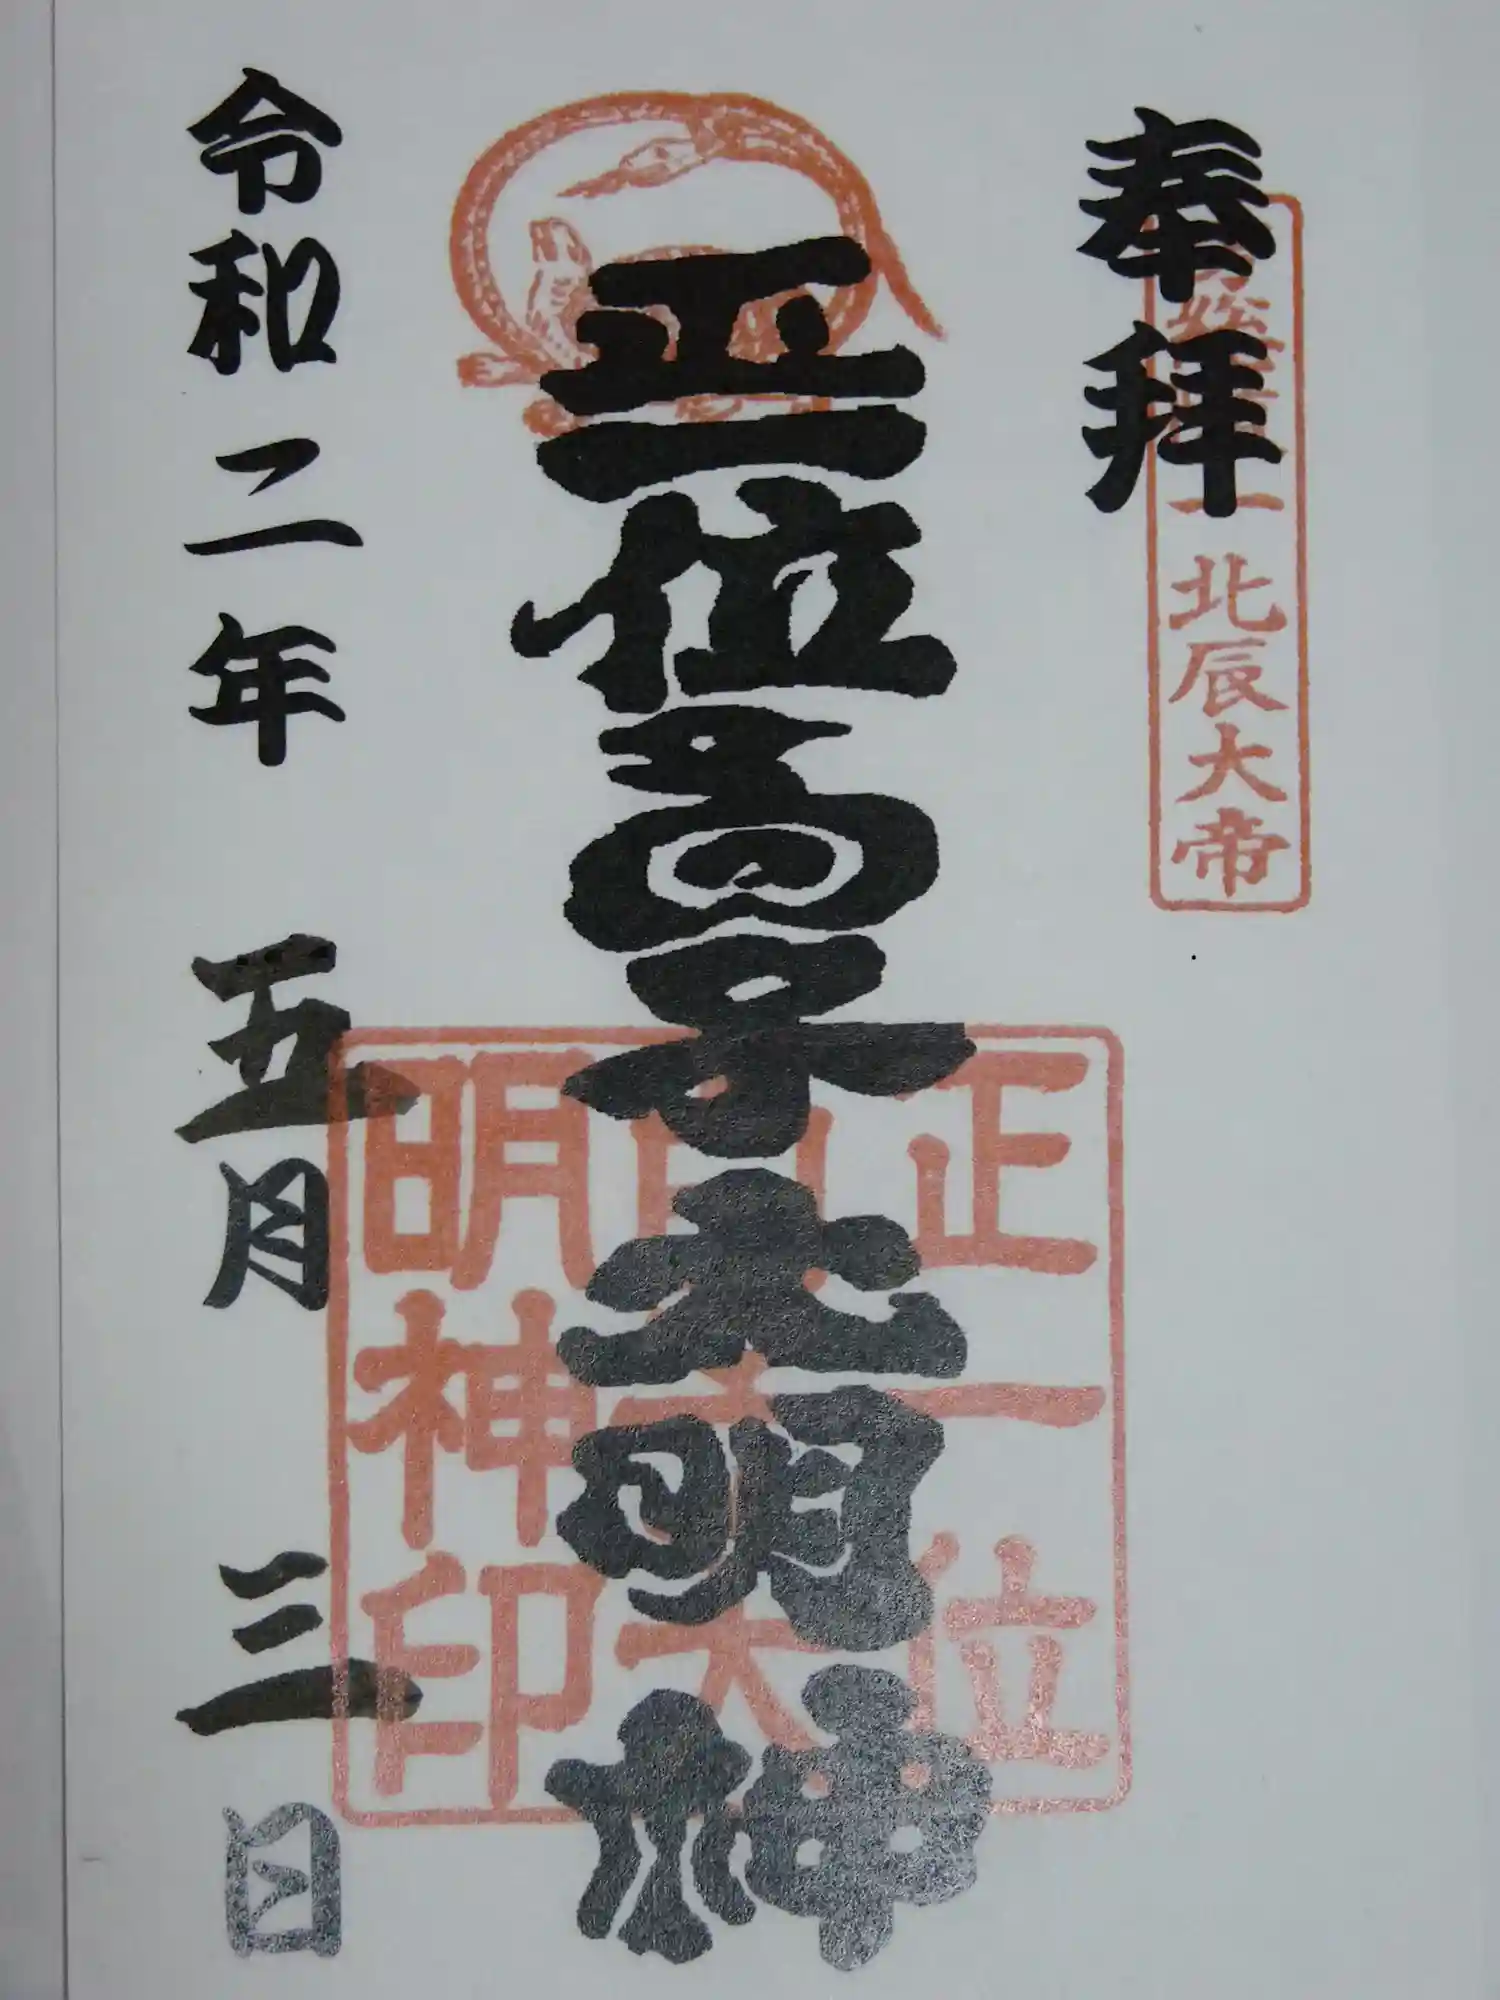 奉拝
北辰大帝
正一位高子大明神
正一位
大
明神印
令和二年 五月 三日